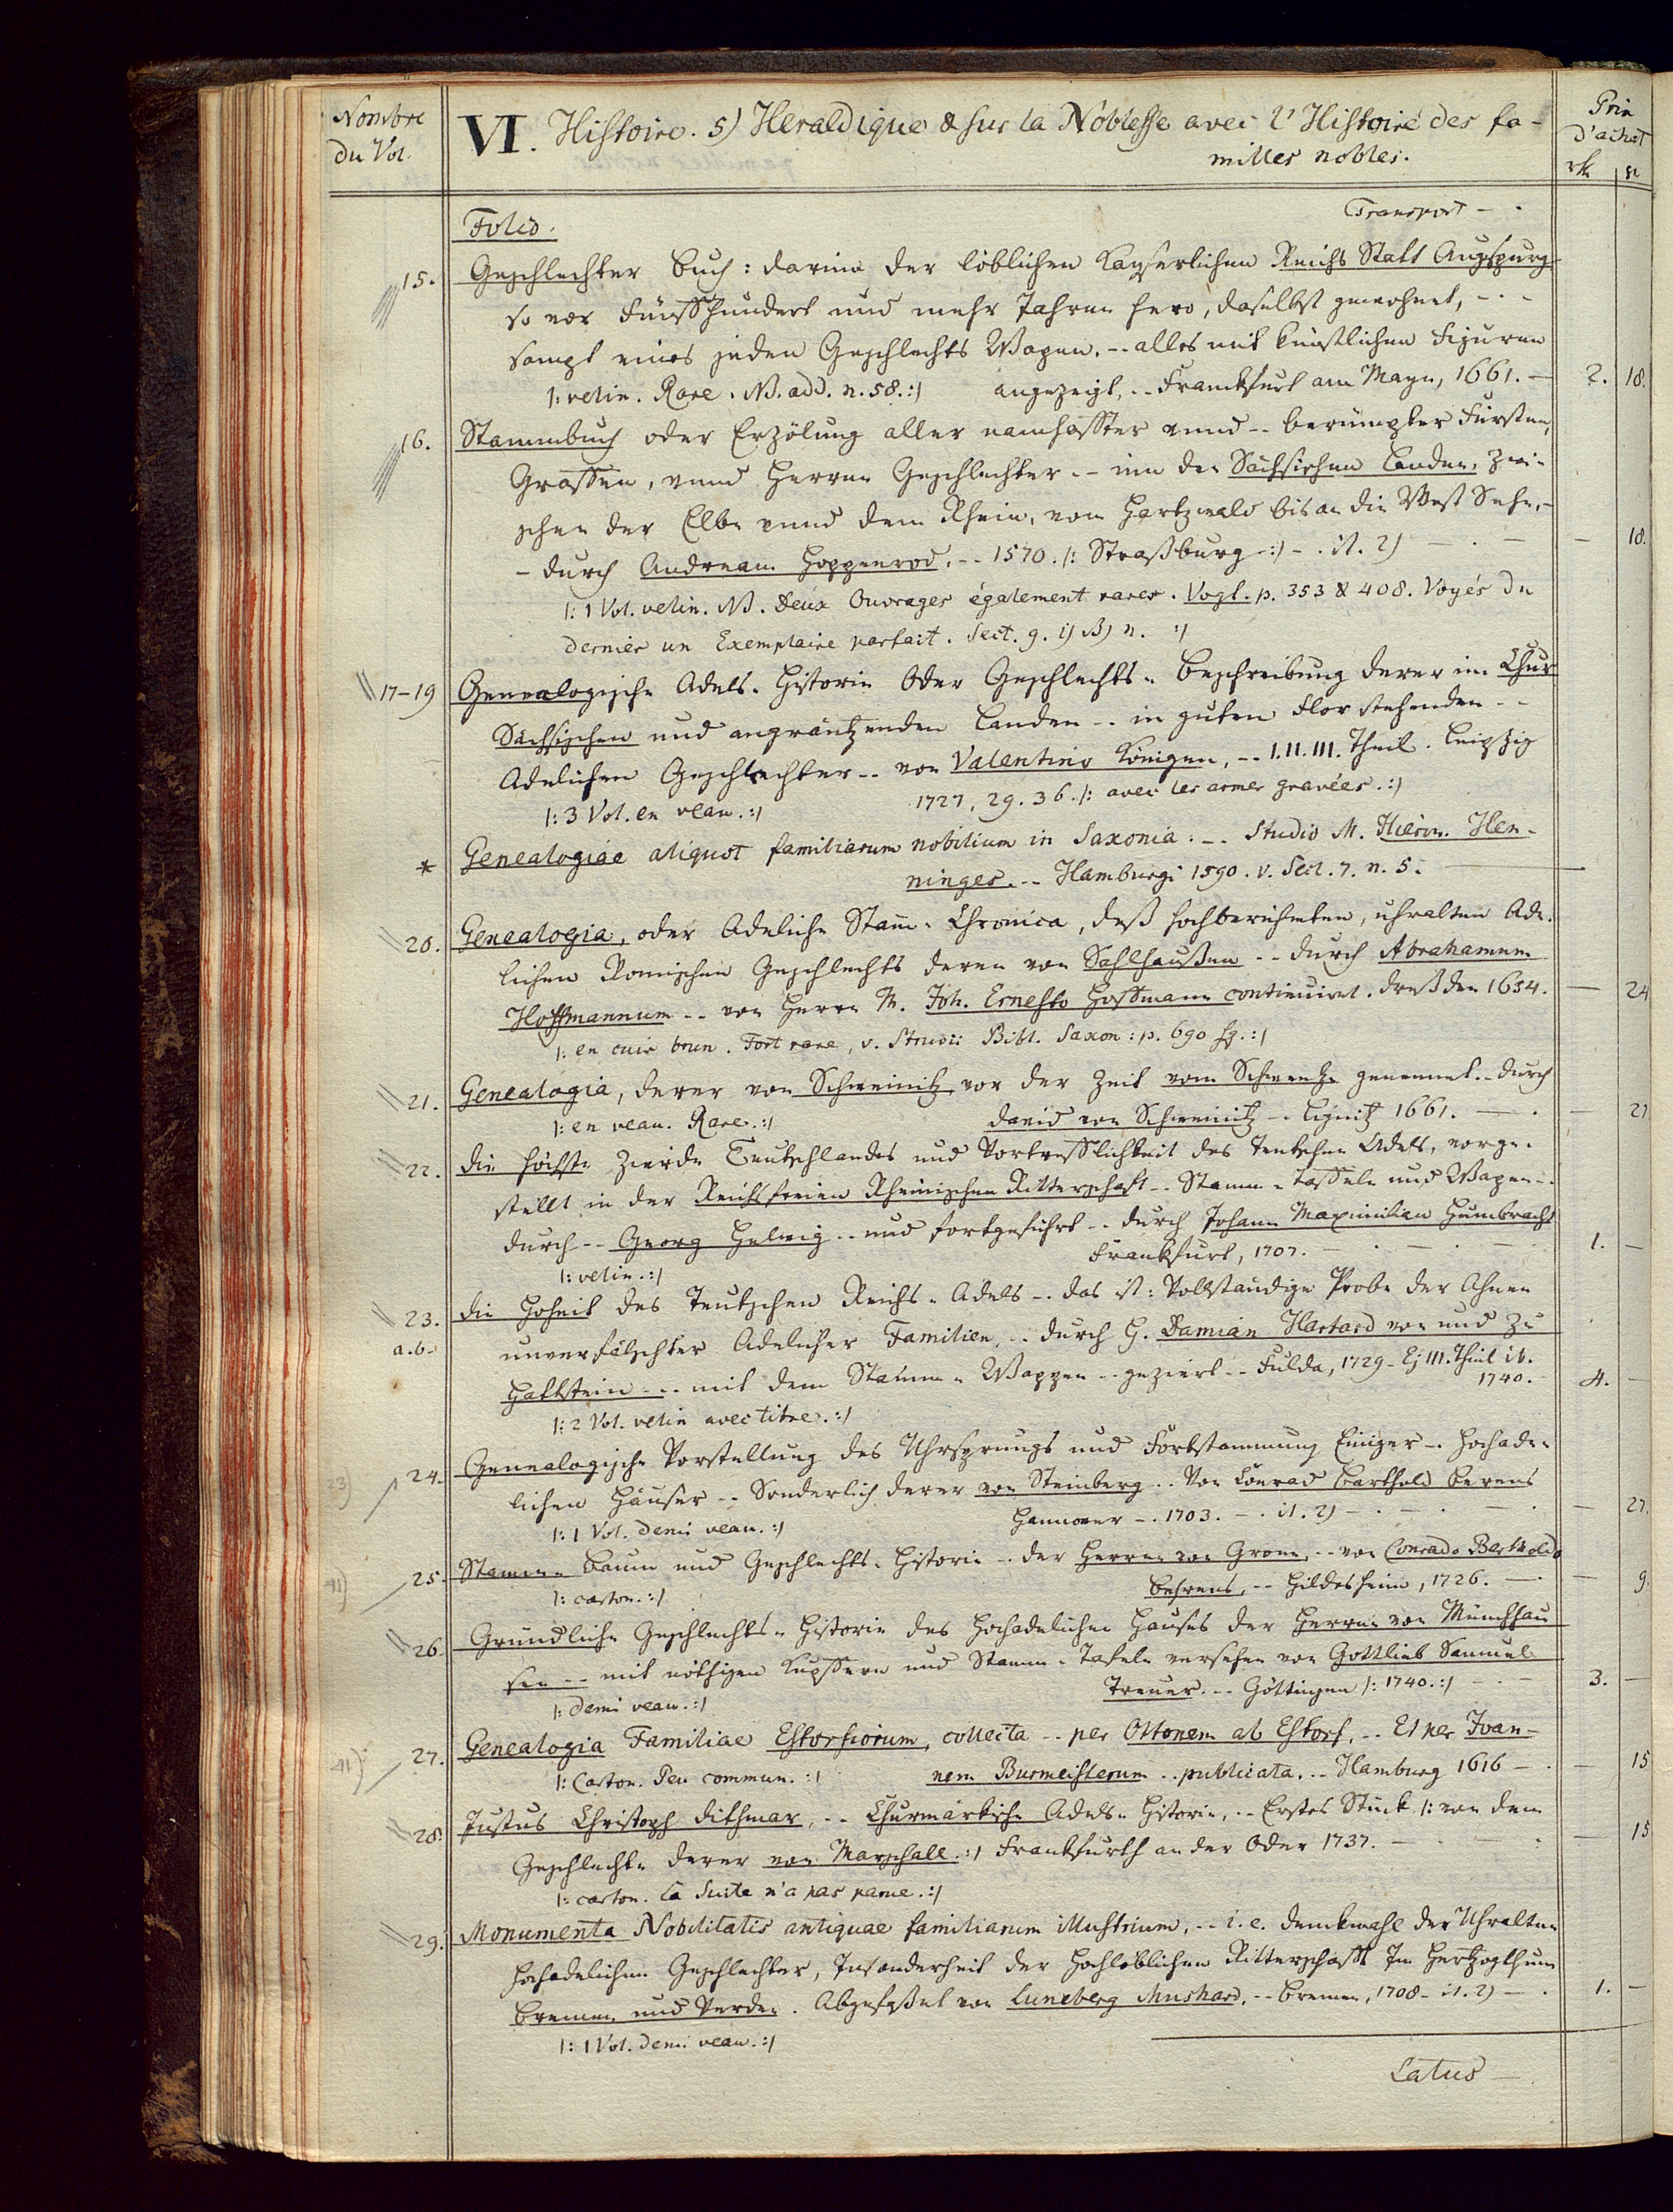 Nombre du Vol.
VI. Histoire. 5) Heraldique & sur la Noblesse avec l'Histoire des fa-
milles nobles.
Prix d'achat
rth gl
Folio. Transport - .
15. Geschlechter Buch: darinn der löblichen Kayserlichen Reichs Statt Augspurg
so vor Fünffhundert und mehr Jahren hero, daselbst gewohnet, - . -
sampt eines jeden Geschlechts Wapen. -- alles mit künstlichen Figuren
|: velin. Rare. NB. add. n. 58. :| angezeigt, -- Franckfurt am Mayn, 1661. - 2. 18.
16. Stammbuch oder Erzölung aller namhaffter unnd -- berümpter Fürsten,
Graffen, unnd Herren Geschlechter -- inn den Sächsischen Landen, zwi-
schen der Elbe unnd dem Rhein, vom Hartzwald bis an die West Sehe, -
- durch Andream Hoppenrod. -- 1570. |: Straßburg :| - . it. 2) - . - - 18.
|: 1 Vol. velin. NB. Deux Ouvrages également rares. Vogt. p. 353 & 408. Voyés du
dernier un Exemplaire parfait. Sect. 9. i) B) n. :|
17-19 Genealogische Adels-Historie Oder Geschlechts-Beschreibung derer im Chur
Sächsischen und angräntzenden Landen -- in guten Flor stehenden --
Adelichen Geschlechter -- von Valentino Königen, -- I. II. III. Theil. Leipzig
|: 3 Vol. en veau. :| 1727, 29. 36. |: avec les armes gravées. :|
* Genealogiae aliquot familiarum nobilium in Saxonia: -- Studio M. Hieron. Hen-
ninges. -- Hamburgi 1590. v. Sect. 7. n. 5.
20. Genealogia, oder Adeliche Stam-Chronica, deß hochberühmten, uhralten Ade-
lichen Römischen Geschlechts deren von Sahlhaußen -- durch Abrahamum
Hoffmannum -- von Herrn M. Joh. Ernesto Hoffmann continuiret. Dreßden 1654. - 24
|: en cuir brun. Fort rare, v. Struvii Bibl. Saxon: p. 690 sq. :|
21. Genealogia, derer von Schweinitz vor der Zeit vom Schwentze genennet. -- durch
|: en veau. Rare. :| David von Schweinitz -- Lignitz 1661. - . - 21
22. Die höchste Zierde Teutschlandes und Vortrefflichkeit des Teutschen Adels, vorge-
stellt in der Reichsfreien Rheinischen Ritterschaft -- Stamm-Taffeln und Wapen --
durch -- Georg Helwig -- und fortgeführt -- durch Johann Maximilian Humbracht
|: velin. :| Frankfurt, 1707. - . - . - 1. -
23. a.b. Die Hoheit des Teutschen Reichs-Adels -- das ist: Vollständige Probe der Ahnen
unverfälschter Adelicher Familien, -- durch H. Damian Hartard von und zu
Hattstein -- mit dem Stamm-Wappen -- gezieret -- Fulda, 1729 - Ej III. Theil ib.
|: 2 Vol. velin avec titre. :| 1740. 4. -
24. Genealogische Vorstellung des Uhrsprungs und Fortstammung Einiger -- Hochade-
lichen Häuser -- Sonderlich derer von Steinberg -- Von Conrad Barthold Berens
|: 1 Vol. demi veau. :| Hannover -- 1703. - . it. 2) - . - . - 27.
25. Stamm-Baum und Geschlechts-Historie -- der Herren von Grone, -- von Conrado Bertholdo
|: carton. :| Behrens, -- Hildesheim, 1726. - . - 9.
26. Gründliche Geschlechts-Historie des Hochadelichen Hauses der Herren von Münchhau
sen -- mit nöthigen Kupffern und Stamm-Tafeln versehen von Gottlieb Samuel
|: demi veau. :| Treuer. -- Göttingen |: 1740. :| - - 3. -
27. Genealogia Familiae Estorfiorum, collecta -- per Ottonem ab Estorf, -- Et per Ivan-
|: Carton. Peu commun. :| nem Burmeisterum -- publicata. -- Hamburg 1616 - . - 15
28. Justus Christoph Dithmar, -- Churmärkische Adels-Historie, -- Erstes Stück |: von dem
Geschlechte derer von Marschall. :| Frankfurth an der Oder 1737. - . - . - 15
|: carton. La Suite n'a pas parue. :|
29. Monumenta Nobilitatis antiquae familiarum illustrium, -- i.e. Denckmahl der Uhralten
Hochadelichen Geschlechter, Insonderheit der Hochlöblichen Ritterschafft Im Hertzogthum
Bremen und Verden. Abgefaßet von Luneberg Mushard. -- Bremen, 1708 - it. 2) - . 1. -
|: 1 Vol. demi veau. :|
Latus -